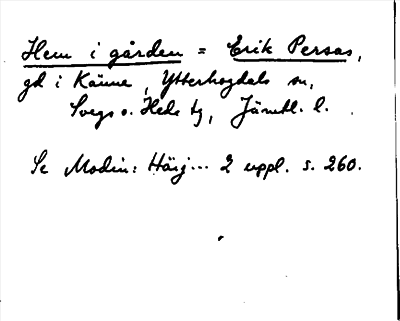 Hem i gården = Erik Persas,
gd i Känne, Ytterhogdals sn,
Svegs o. Hede tg, Jämtl. l.
Se Modin: Härj... 2 uppl. s. 260.